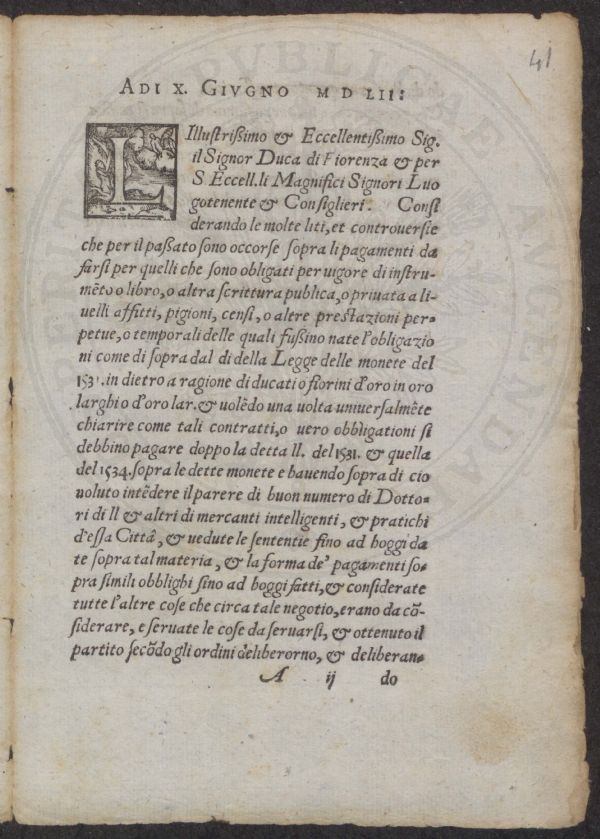 41
ADI X. GIVGNO M D LII:
LIllustrißimo & Eccellentißimo Sig.
il Signor Duca di Fiorenza & per
S Eccell. li Magnifici Signori Luo
gotenente & Consiglieri. Consi
derando le molte liti, et controuersie
che per il paßato sono occorse sopra li pagamenti da
farsi per quelli che sono obligati per uigore di instru-
mẽto o libro, o altra scrittura publica, o priuata a li-
uelli affitti, pigioni, censi, o altre prestazioni per-
petue, o temporali delle quali fußino nate l'obligazio
ni come di sopra dal di della Legge delle monete del
1531. in dietro a ragione di ducati o fiorini d'oro in oro
larghi o d'oro lar. & uolẽdo una uolta uniuersalmẽte
chiarire come tali contratti, o uero obbligationi si
debbino pagare doppo la detta ll. del 1531. & quella
del 1534. sopra le dette monete e hauendo sopra di cio
uoluto intẽdere il parere di buon numero di Dotto-
ri di ll & altri di mercanti intelligenti, & pratichi
d'essa Città, & uedute le sententie fino ad hoggi da
te sopra tal materia, & la forma de' pagamenti so-
pra simili obblighi sino ad hoggi fatti, & considerate
tutte l'altre cose che circa tale negotio, erano da cõ-
siderare, e seruate le cose da seruarsi, & ottenuto il
partito secõdo gli ordini deliberorno, & deliberan-
A ij do